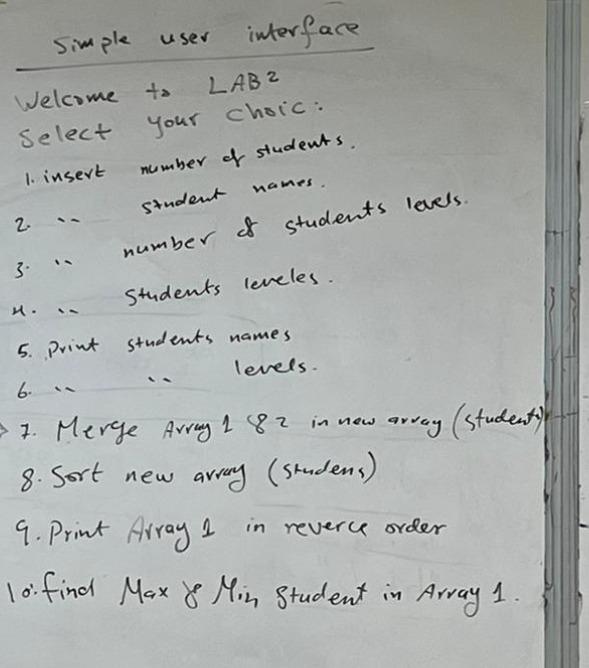 Simple user interface
Welcome to LAB2
Select your choic:
1. insert number of students.
2. " student names.
3. " number of students levels.
4. " Students leveles.
5. Print students names
6. " " levels.
7. Merge Array 1 & 2 in new array (students)
8. Sort new array (studens)
9. Print Array 1 in reverce order
10. find Max & Min Student in Array 1.